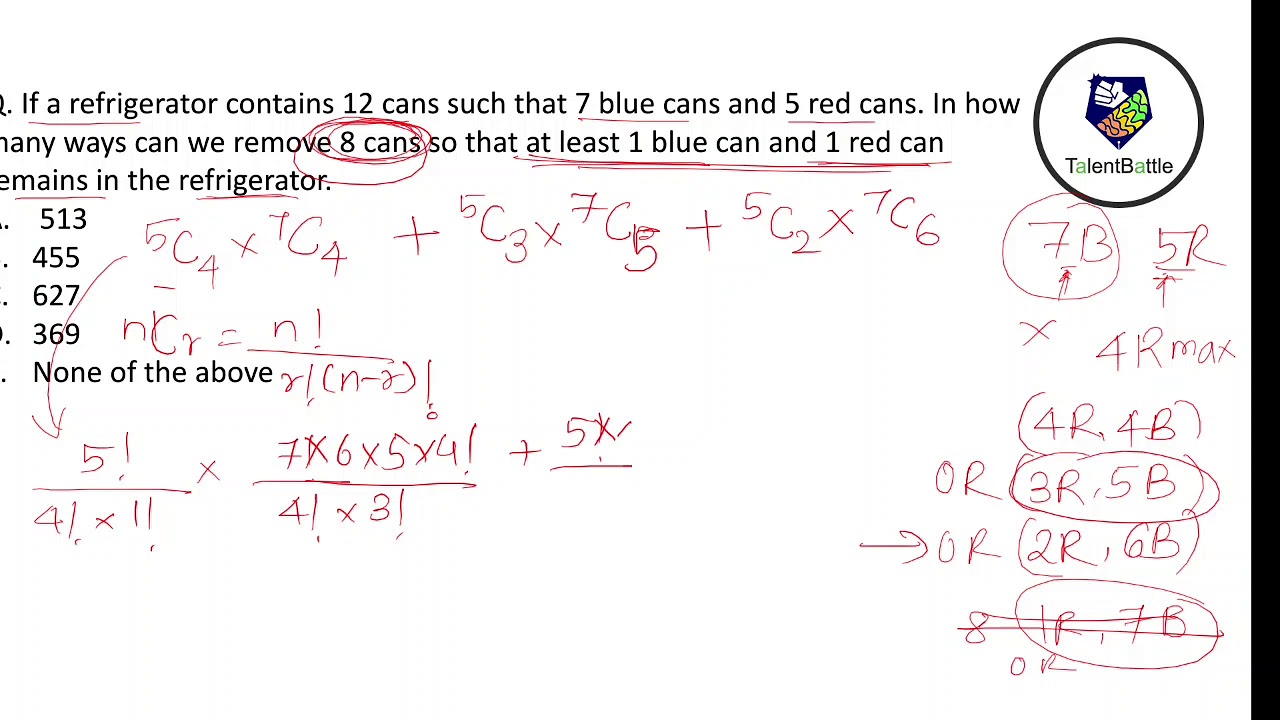 Q. If a refrigerator contains 12 cans such that 7 blue cans and 5 red cans. In how
many ways can we remove 8 cans so that at least 1 blue can and 1 red can
remains in the refrigerator.
A. 513
B. 455
C. 627
D. 369
E. None of the above
TalentBattle
⁵C₄ × ⁷C₄ + ⁵C₃ × ⁷C₅ + ⁵C₂ × ⁷C₆
nCr = n! / r!(n-r)!
5! / 4! × 1! × 7×6×5×4! / 4! × 3! + 5×
7B 5R
×
4R max
(4R, 4B)
OR (3R, 5B)
→ OR (2R, 6B)
8 1R, 7B
OR